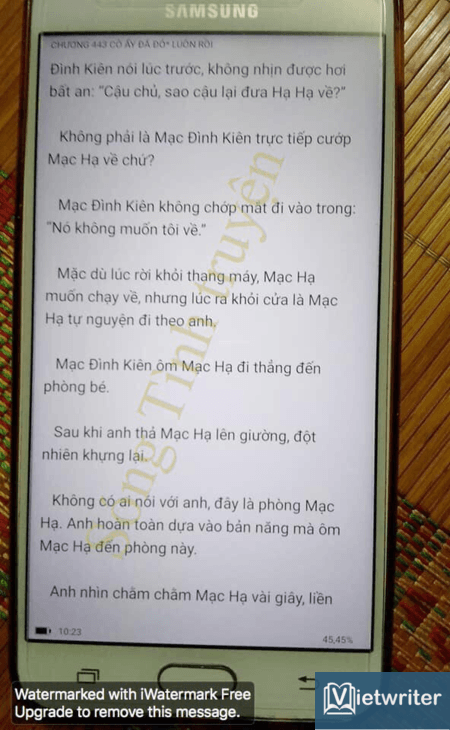 SAMSUNG
CHƯƠNG 443 CÔ ẤY ĐÃ ĐỒ* LUÔN RỒI
Đình Kiên nói lúc trước, không nhịn được hơi
bất an: "Cậu chủ, sao cậu lại đưa Hạ Hạ về?"
Không phải là Mạc Đình Kiên trực tiếp cướp
Mạc Hạ về chứ?
Mạc Đình Kiên không chớp mắt đi vào trong:
"Nó không muốn tôi về."
Mặc dù lúc rời khỏi thang máy, Mạc Hạ
muốn chạy về, nhưng lúc ra khỏi cửa là Mạc
Hạ tự nguyện đi theo anh.
Mạc Đình Kiên ôm Mạc Hạ đi thẳng đến
phòng bé.
Sau khi anh thả Mạc Hạ lên giường, đột
nhiên khựng lại.
Không có ai nói với anh, đây là phòng Mạc
Hạ. Anh hoàn toàn dựa vào bản năng mà ôm
Mạc Hạ đến phòng này.
Anh nhìn chằm chằm Mạc Hạ vài giây, liền
10:23
45,45%
Sạng Tình truyện
Watermarked with iWatermark Free
Upgrade to remove this message.
Vietwriter